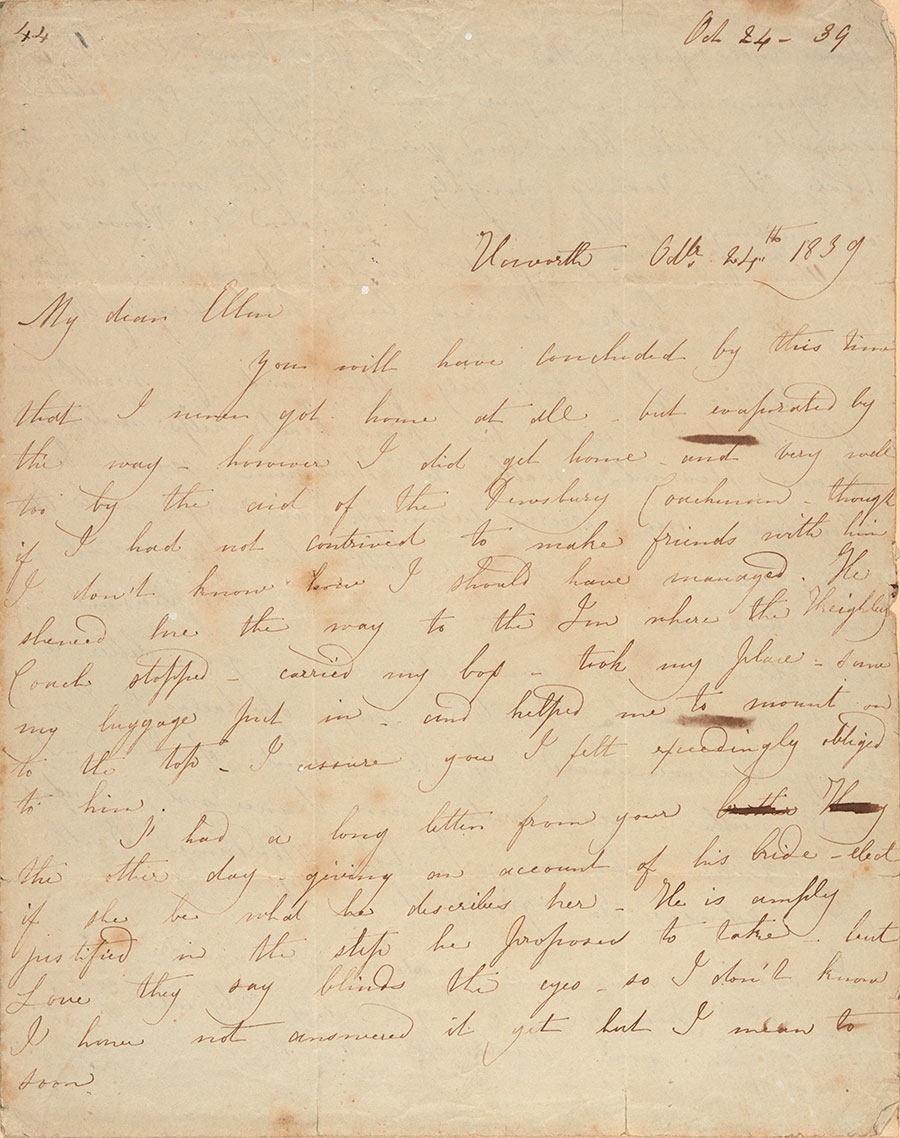 44
Oct 24 - 39
Haworth Octbr. 24th 1839
My dear Ellen
You will have concluded by this time
that I never got home at all - but evaporated by
the way - however I did get home - and very well
too by the aid of the Dewsbury Coachman - though
if I had not contrived to make friends with him
I don't know how I should have managed. He
shewed me the way to the Inn where the Keighley
Coach stopped - carried my box - took my place - saw
my luggage put in - and helped me to mount on
to the top - I assure you I felt exceedingly obliged
to him.
I had a long letter from your brother Henry
the other day - giving an account of his bride-elect
if she be what he describes her - He is amply
justified in the step he proposes to take - but
Love they say blinds the eyes - so I don't know
I have not answered it yet but I mean to
soon